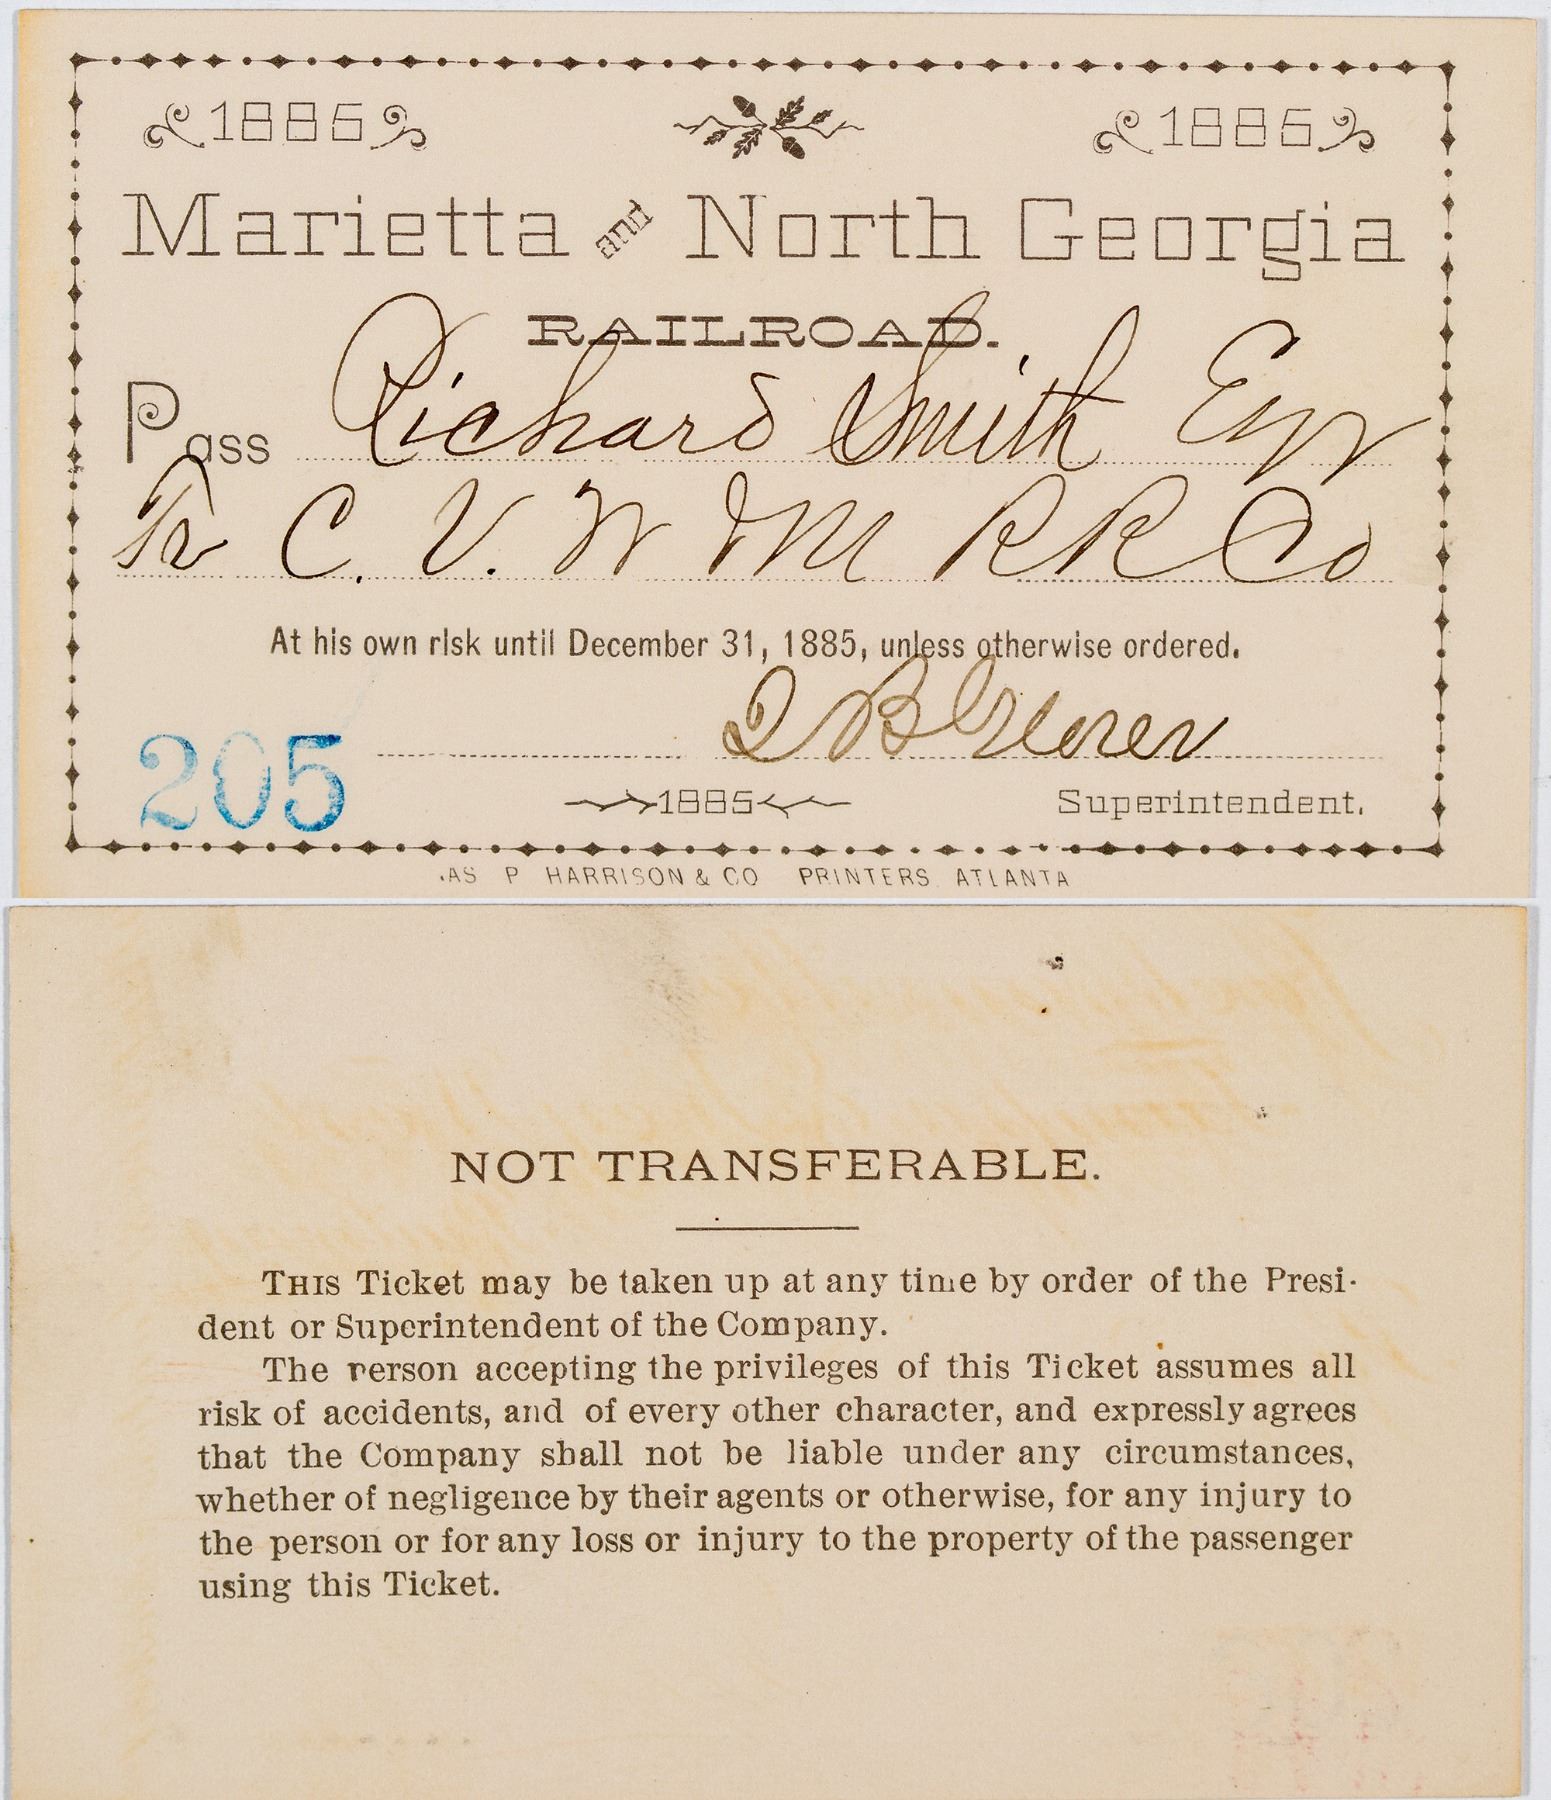 1885 1885
Marietta and North Georgia
RAILROAD.
Pass Richard Smith Esqr
Tr C. V. W M RR Co
At his own risk until December 31, 1885, unless otherwise ordered.
205
1885 Superintendent.
AS P HARRISON & CO PRINTERS ATLANTA
NOT TRANSFERABLE.
THIS Ticket may be taken up at any time by order of the Presi-
dent or Superintendent of the Company.
The person accepting the privileges of this Ticket assumes all
risk of accidents, and of every other character, and expressly agrees
that the Company shall not be liable under any circumstances,
whether of negligence by their agents or otherwise, for any injury to
the person or for any loss or injury to the property of the passenger
using this Ticket.